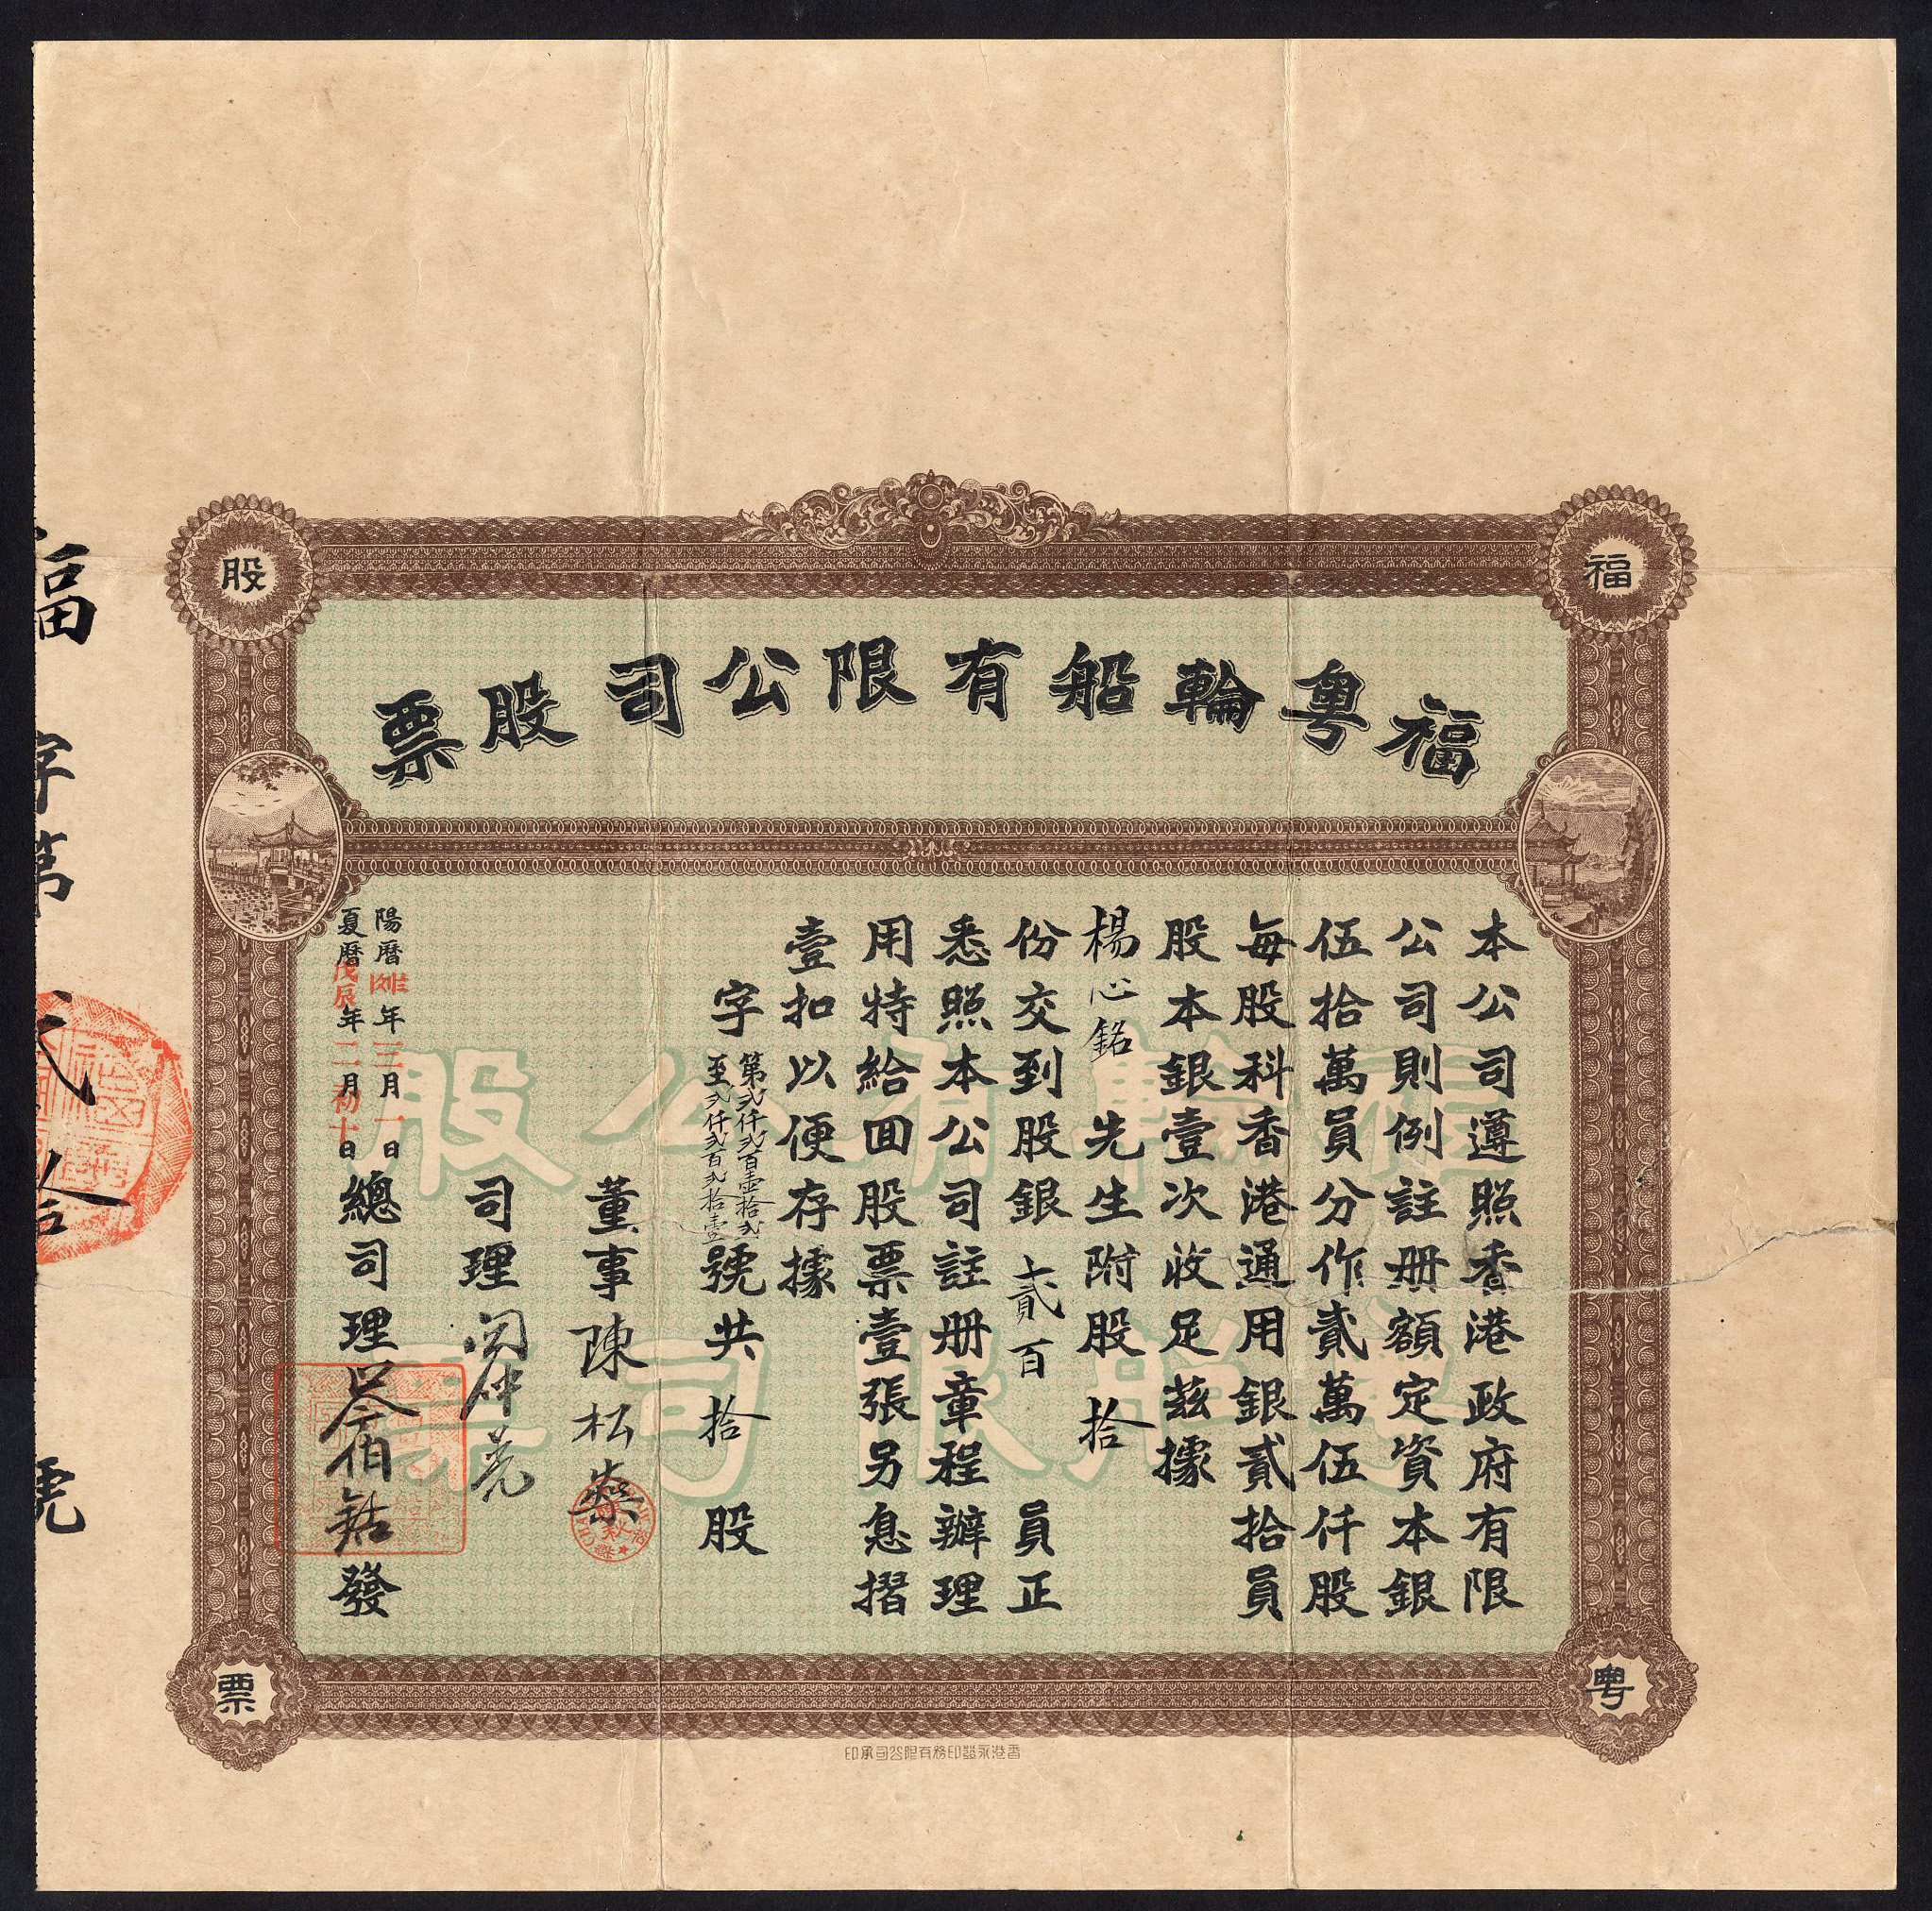 福粵輪船有限公司股票
福
粵
股
票
本公司遵照香港政府有限
公司則例註册額定資本銀
伍拾萬員分作貳萬伍仟股
每股科香港通用銀貳拾員
股本銀壹次收足茲據
楊心銘 先生附股 拾
份交到股銀 貳百 員正
悉照本公司註册章程辦理
用特給回股票壹張另息摺
壹扣以便存據
字 第弍仟弍百壹拾弍
至弍仟弍百弍拾壹 號共 拾 股
董事 陳松燊
司理
總司理 發
陽曆 年三月一日
夏曆戊辰年二月初十日
福 字第 弍拾 號
福輪有公股
粵船限司票
香港永發印務有限公司承印